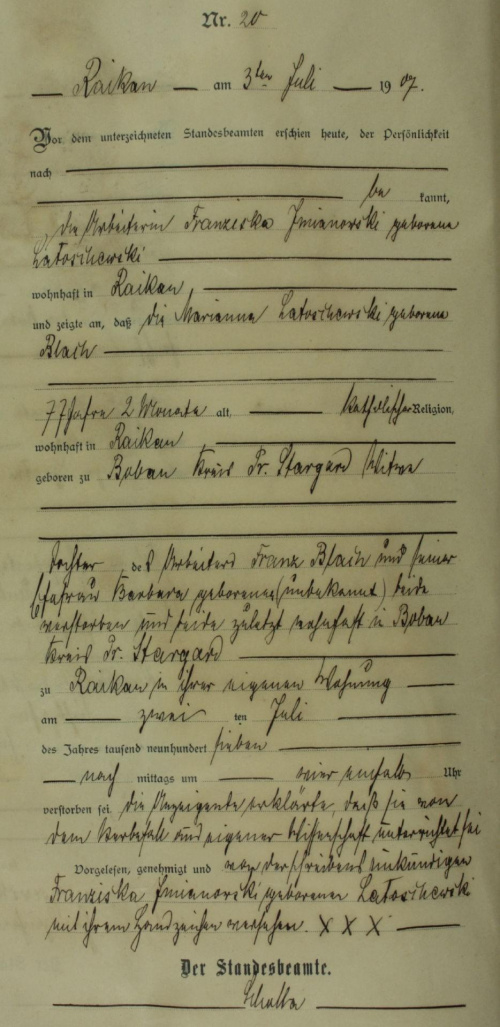 Nr. 20
Raikau am 3ten Juli 1907.
Vor dem unterzeichneten Standesbeamten erschien heute, der Persönlichkeit
nach
be kannt,
die Arbeiterin Franziska geborene
Latoschewski
wohnhaft in Raikau,
und zeigte an, daß die Marianna Latoschewski geborene
Blach
77 Jahre 2 Monate alt, katholischer Religion,
wohnhaft in Raikau
geboren zu Bobau Kreis Pr. Stargard Witwe
Tochter des Arbeiters Franz Blach und seiner
Ehefrau Barbara geborene (unbekannt) beide
verstorben und beide zuletzt wohnhaft in Bobau
Kreis Pr. Stargard
zu Raikau in ihrer eigenen Wohnung
am zwei ten Juli
des Jahres tausend neunhundert sieben
nach mittags um vier einhalb Uhr
verstorben sei. die Anzeigende erklärte, daß sie von
dem Sterbefall aus eigener Wissenschaft unterrichtet sei
Vorgelesen, genehmigt und von der schreibensunkundigen
Franziska geborenen Latoschewski
mit ihrem Handzeichen versehen. X X X
Der Standesbeamte.